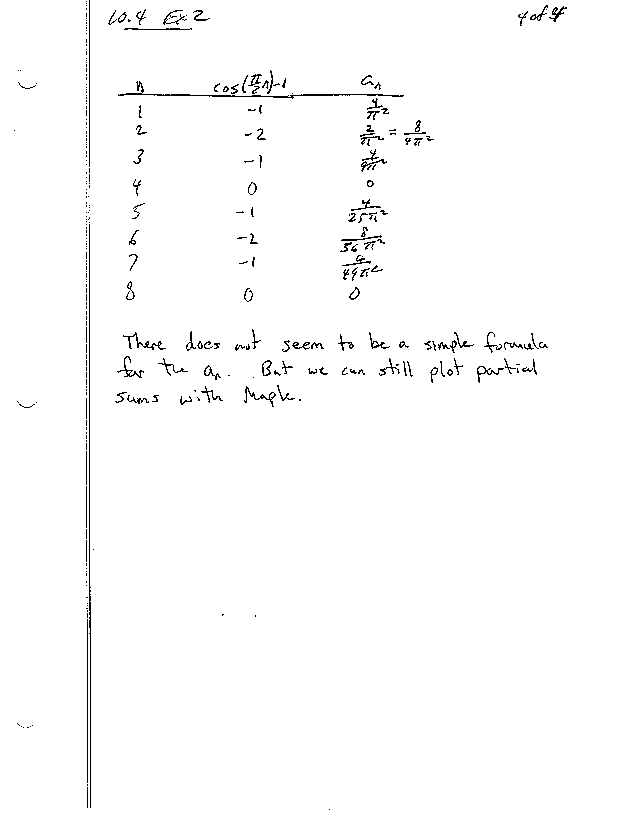 10.4 Ex 2 4 of 4
n cos(π/2 n)-1 aₙ
1 -1 4/π²
2 -2 2/π² = 8/4π²
3 -1 4/9π²
4 0 0
5 -1 4/25π²
6 -2 8/36π²
7 -1 4/49π²
8 0 0
There does not seem to be a simple formula
for the aₙ. But we can still plot partial
sums with Maple.